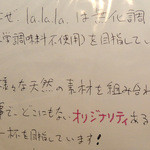 ぜ la.la.la. は無化調
学調味料不使用)を目指してい
様々な天然の素材を組み合わ
事で、どこにもないオリジナリティある
一杯を目指しています!